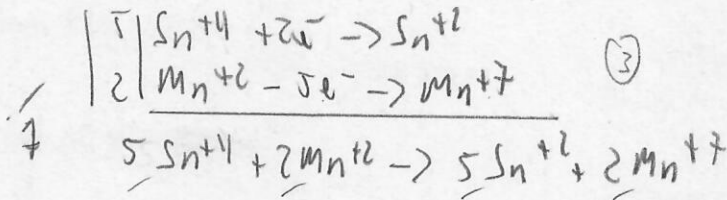 5 | Sn⁺⁴ + 2e⁻ -> Sn⁺² ③
2 | Mn⁺² - 5e⁻ -> Mn⁺⁷
1 5 Sn⁺⁴ + 2 Mn⁺² -> 5 Sn⁺² + 2 Mn⁺⁷